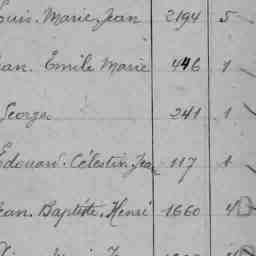 Louis. Marie Jean 2194 5
Jean. Emile Marie 446 1
Georges 241 1
Edouard. Célestin Jean 117 1
Jean. Baptiste. Henri 1660 4